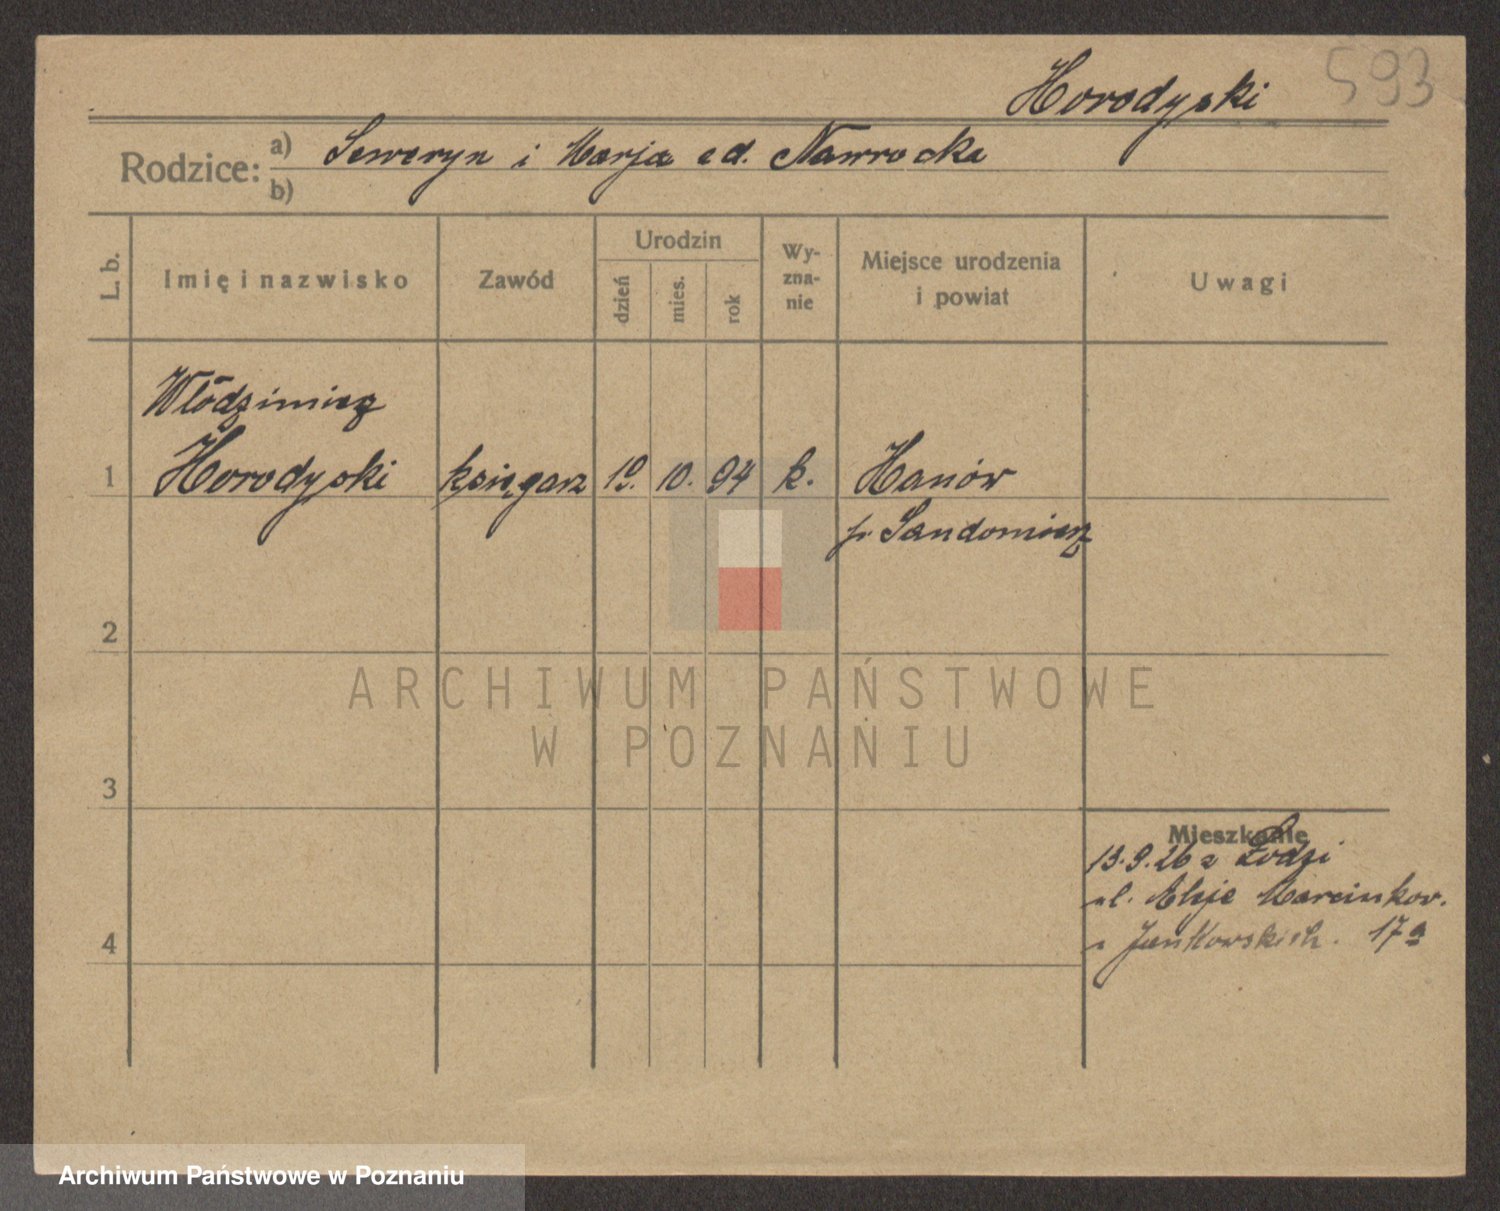 593
Horodyski
Rodzice: a) Seweryn i Marja z d. Nawrocka
b)
L. b.
Imię i nazwisko
Zawód
Urodzin
dzień
mies.
rok
Wy-
zna-
nie
Miejsce urodzenia
i powiat
Uwagi
Włódzimierz
1 Horodyski księgarz 19. 10. 94 k. Hanów
p. Sandomierz
2
ARCHIWUM PAŃSTWOWE
W POZNANIU
3
Mieszkanie
13.9.26 z Łodzi
ul. Aleje Marcinkow.
4
u Jankowskich. 17a
Archiwum Państwowe w Poznaniu